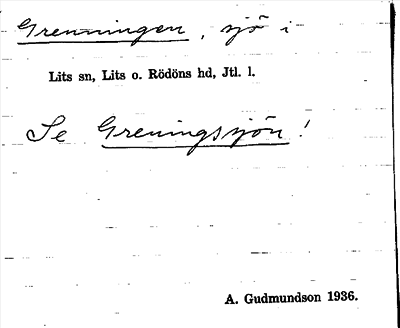 Grenningen, sjö i
Lits sn, Lits o. Rödöns hd, Jtl. l.
Se Greningssjön!
A. Gudmundson 1936.